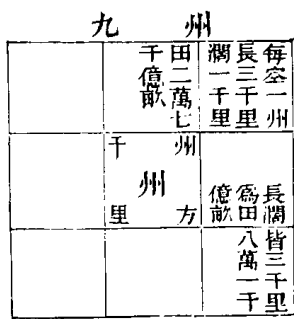 九州
每空一州
長三千里
濶一千里
田二萬七
千億畝
州方
州
千里
長濶皆三千里
爲田八萬一千
億畝